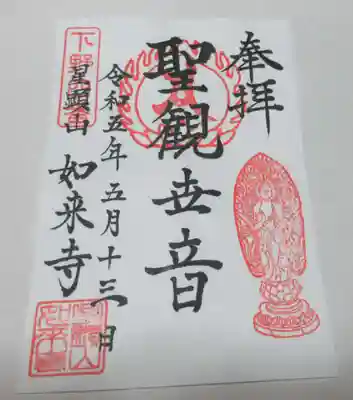 奉拝
聖観世音
令和五年五月十三日
星顕山
如来寺